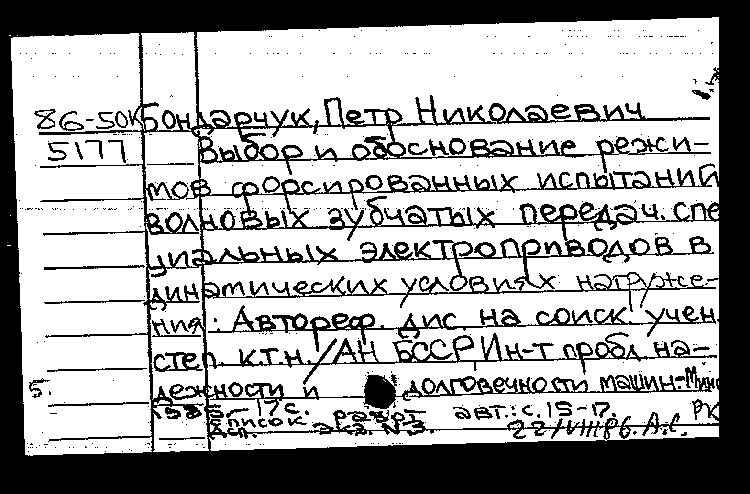 86-50к Бондарчук, Петр Николаевич
5177 Выбор и обоснование режи-
мов форсированных испытаний
волновых зубчатых передач спе
циальных электроприводов в
динамических условиях нагруже-
ния : Автореф. дис. на соиск. учен
степ. к.т.н. / АН БССР, Ин-т пробл. на-
5. дежности и долговечности машин.-Минс
1985.-17 с.
Список работ авт.: с. 15-17.
экз. N 3. 22/VIII 86. А.С. РК